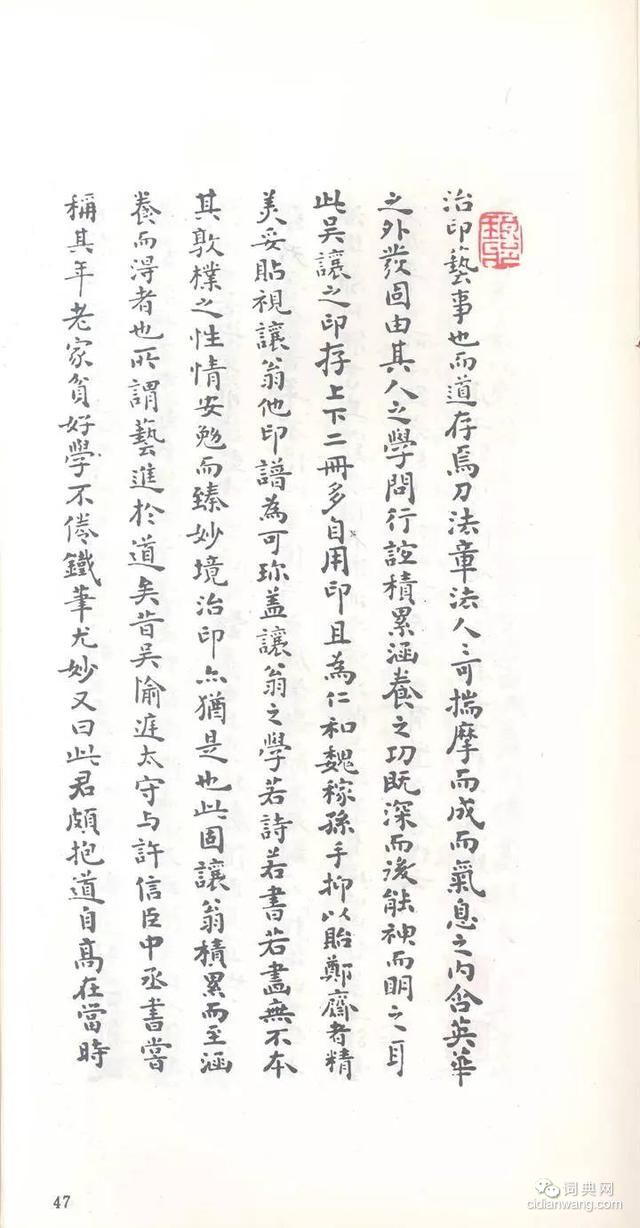 治印藝事也而道存焉刀法章法人人可揣摩而成而氣息之内含英華
之外發固由其人之學問行誼積累涵養之功既深而後能神而明之耳
此吳讓之印存上下二冊多自用印且為仁和魏稼孫手抑以貽鄭齋者精
美妥貼視讓翁他印譜為可珍蓋讓翁之學若詩若書若畫無不本
其敦樸之性情安勉而臻妙境治印亦猶是也此固讓翁積累而至涵
養而得者也所謂藝進於道矣昔吳渝遲太守与許信臣中丞書嘗
稱其年老家貧好學不倦鐵筆尤妙又曰此君頗抱道自高在當時
47
词典网
cidianwang.com